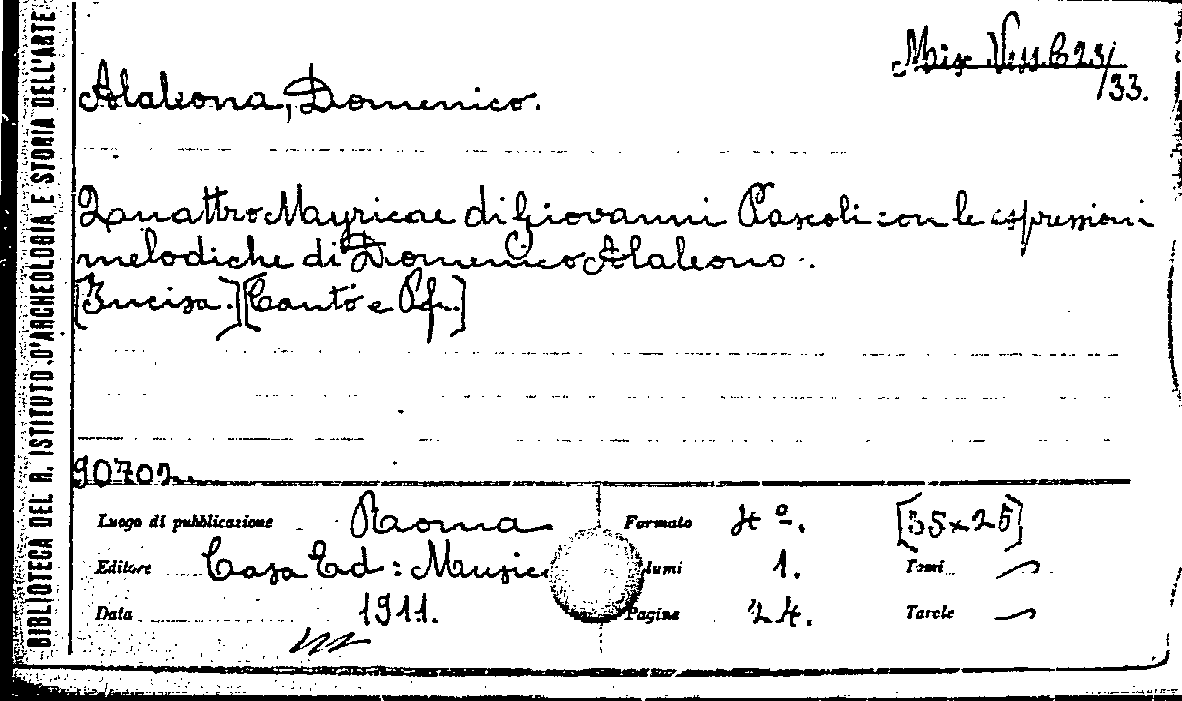 BIBLIOTECA DEL R. ISTITUTO D'ARCHEOLOGIA E STORIA DELL'ARTE
Mis. Vess. C 23/
33.
Alaleona, Domenico.
Quattro Myricae di Giovanni Pascoli con le espressioni
melodiche di Domenico Alaleona.
[Incisa.][Canto e Pf.]
90702
Luogo di pubblicazione Roma Formato 4º. [35x25]
Editore Casa Ed: Music lumi 1. Tomi
Data 1911. Pagine 24. Tavole